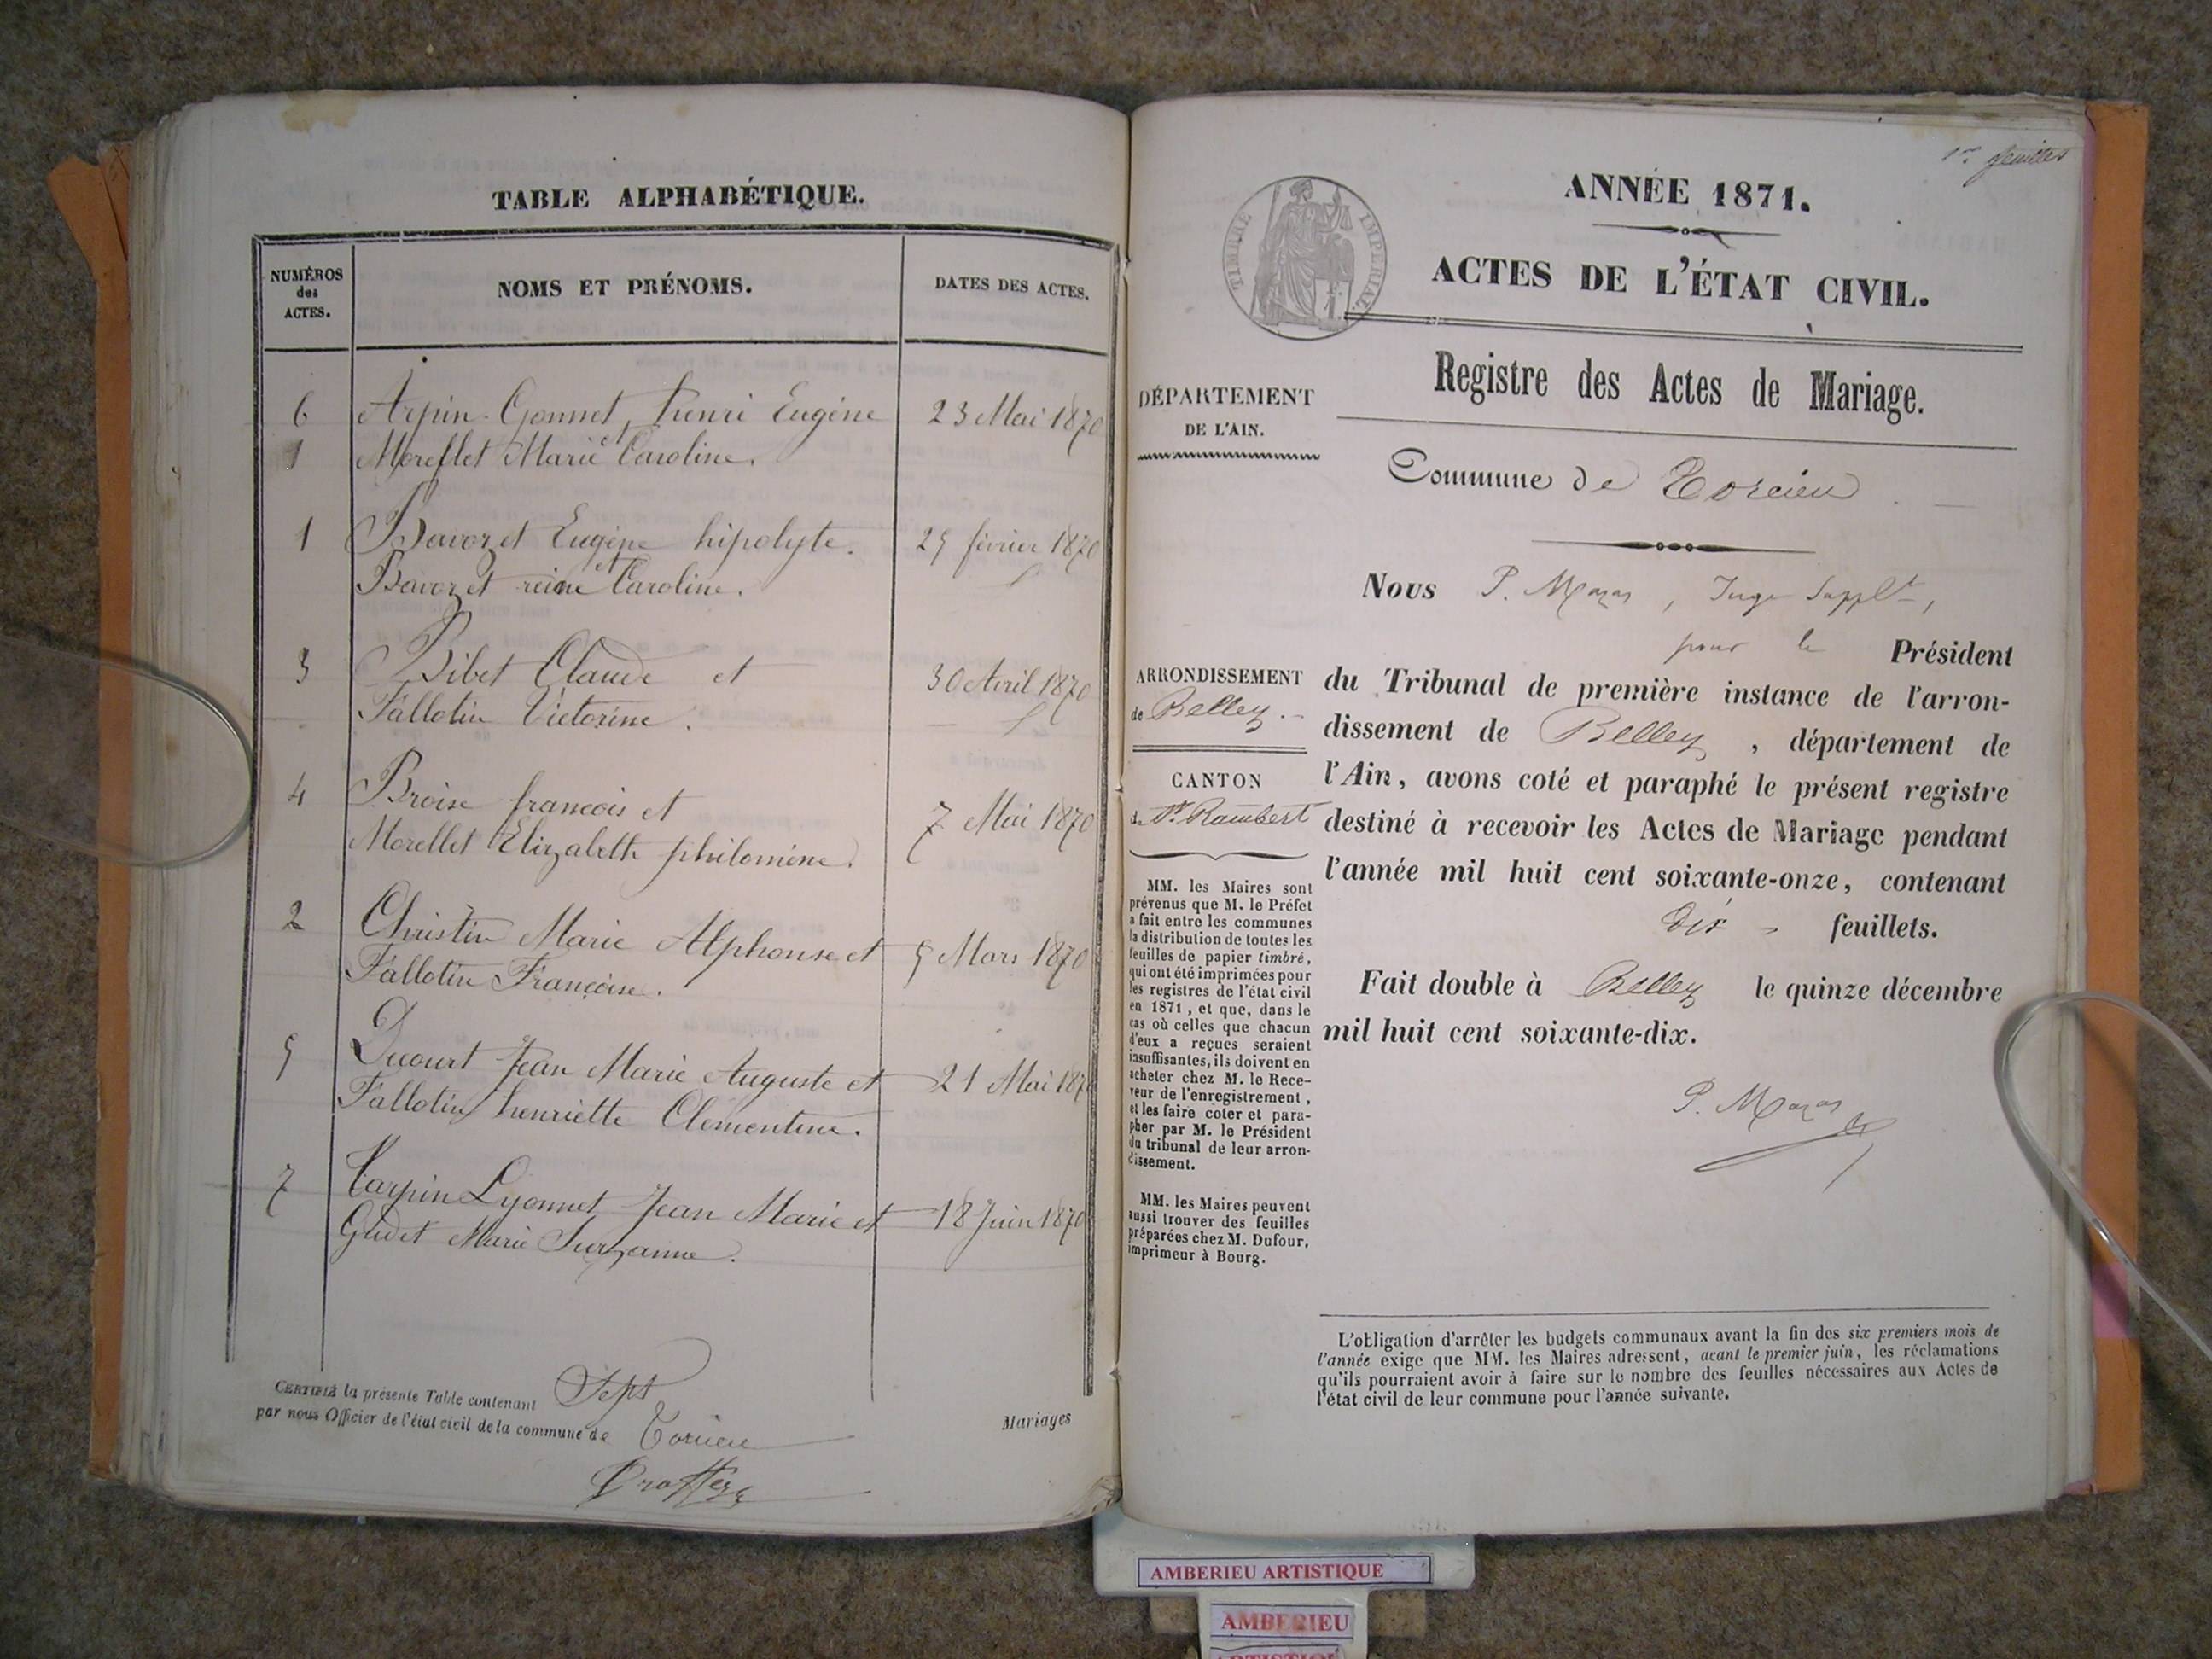 TABLE ALPHABÉTIQUE.
NUMÉROS
des
ACTES.
NOMS ET PRÉNOMS.
DATES DES ACTES.
6 Arpin-Gonnet, henri Eugène 23 Mai 1870
et
1 Morellet Marie Caroline.
1 Bavozet Eugène hipolyte. 25 février 1870
et
Bavozet reine Caroline.
3 Bibet Claude et 30 Avril 1870
Fallotin Victorine.
4 Broise francois et 7 Mai 1870
Morellet Elizabeth philomène.
2 Christin Marie Alphonse et 5 Mars 1870
Fallotin Françoise.
5 Ducourt Jean Marie Auguste et 21 Mai 1870
Fallotin henriette Clementine.
7 Tarpin Lyonnet Jean Marie et 18 Juin 1870
Gudet Marie Suzanne.
CERTIFIÉ la présente Table contenant Sept
Mariages
par nous Officier de l'état civil de la commune de Torcieu
1re feuillet
ANNÉE 1871.
TIMBRE IMPÉRIAL
ACTES DE L'ÉTAT CIVIL.
Registre des Actes de Mariage.
DÉPARTEMENT
DE L'AIN.
Commune de Torcieu
Nous P. Mazas, Juge Supplt,
pour le Président
ARRONDISSEMENT
de Belley.
CANTON
de St. Rambert
du Tribunal de première instance de l'arron-
dissement de Belley, département de
l'Ain, avons coté et paraphé le présent registre
destiné à recevoir les Actes de Mariage pendant
l'année mil huit cent soixante-onze, contenant
dix feuillets.
Fait double à Belley le quinze décembre
mil huit cent soixante-dix.
P. Mazas
MM. les Maires sont
prévenus que M. le Préfet
a fait entre les communes
la distribution de toutes les
feuilles de papier timbré,
qui ont été imprimées pour
les registres de l'état civil
en 1871, et que, dans le
cas où celles que chacun
d'eux a reçues seraient
insuffisantes, ils doivent en
acheter chez M. le Rece-
veur de l'enregistrement,
et les faire coter et para-
pher par M. le Président
du tribunal de leur arron-
dissement.
MM. les Maires peuvent
aussi trouver des feuilles
préparées chez M. Dufour,
imprimeur à Bourg.
L'obligation d'arrêter les budgets communaux avant la fin des six premiers mois de
l'année exige que MM. les Maires adressent, avant le premier juin, les réclamations
qu'ils pourraient avoir à faire sur le nombre des feuilles nécessaires aux Actes de
l'état civil de leur commune pour l'année suivante.
AMBERIEU ARTISTIQUE
AMBERIEU
ARTISTIQUE